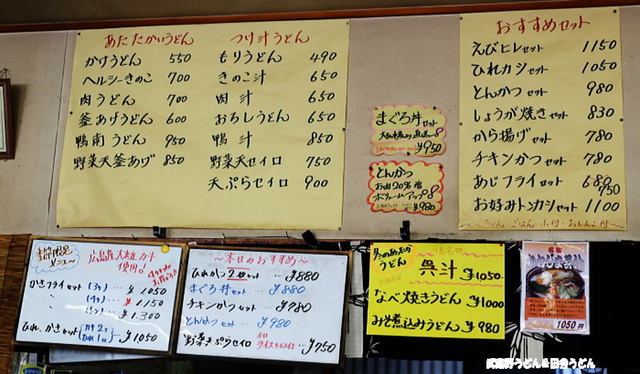 あたたかいうどん
かけうどん 550
ヘルシーきのこ 700
肉うどん 700
釜あげうどん 600
鴨南うどん 950
野菜天釜あげ 850
つけ汁うどん
もりうどん 490
きのこ汁 650
肉汁 650
おろしうどん 650
鴨汁 850
野菜天セイロ 750
天ぷらセイロ 900
まぐろ丼セット
¥950
とんかつ
お肉20%増
ボリュームアップ
¥980
おすすめセット
えびヒレセット 1150
ひれカシセット 1050
とんかつセット 980
しょうが焼きセット 830
から揚げセット 780
チキンかつセット 780
あじフライセット 680
750
お好みトンカシセット 1100
~うどん・ごはん・小付・おしんこ付~
季節限定
メニュー
広島産大粒カキ
使用
かきフライセット (3ヶ) … ¥1050
〃 (4ヶ) … ¥1150
〃 (5ヶ) … ¥1.300
ひれ、かきセット (カキ2ヶ ひれ1ヶ) ¥1050
~本日のおすすめ~
ひれかつ2セット … ¥880
まぐろ丼セット … ¥880
チキンかつセット … ¥780
とんかつセット … ¥980
野菜天ぷらセイロ ¥750
うどん
呉汁 ¥1050
なべ焼きうどん ¥1000
みそ煮込みうどん ¥980
名物
1050円
武蔵野うどん&田舎うどん